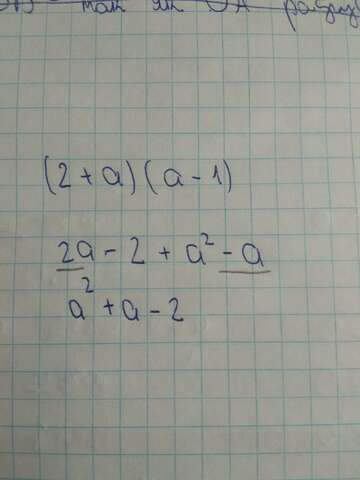 (2 + a) (a - 1)
2a - 2 + a² - a
a² + a - 2